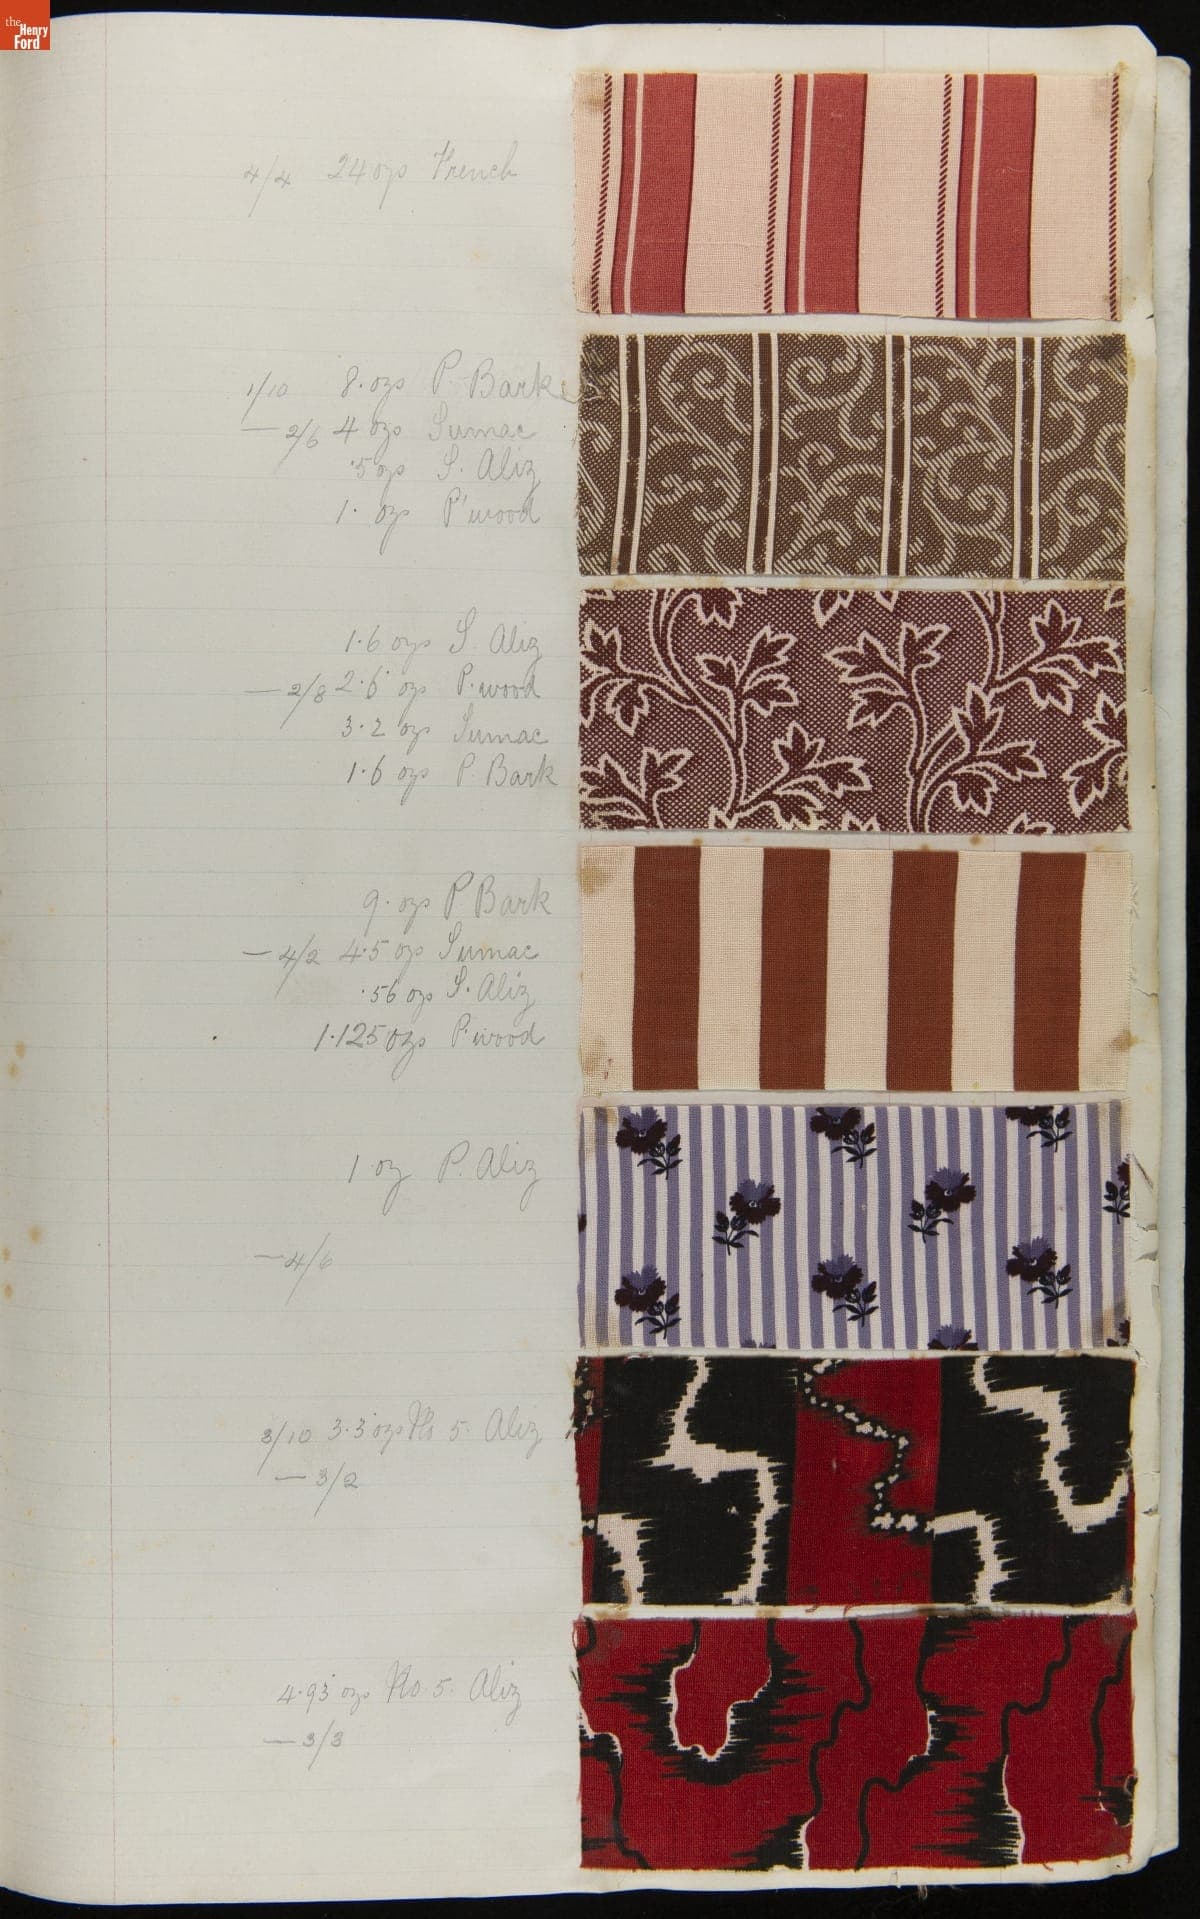 the Henry Ford
4/4 24 ozs French
1/10 8. ozs P. Bark
— 2/6 4 ozs Sumac
.5 ozs S. Aliz
1. ozs P'wood
1.6 ozs S. Aliz
— 2/8 2.6 ozs P.wood
3.2 ozs Sumac
1.6 ozs P. Bark
9. ozs P Bark
— 4/2 4.5 ozs Sumac
.56 ozs S. Aliz
1.125 ozs P.wood
1 oz P. Aliz
— 4/6
3/10 3.3 ozs No 5. Aliz
— 3/2
4.93 ozs No 5. Aliz
— 3/3